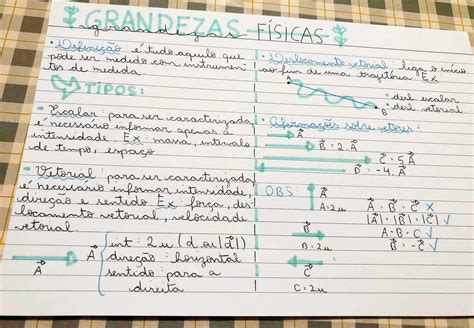 GRANDEZAS FÍSICAS
grandezas
• Definição é tudo aquilo que
pode ser medido com instrumen-
tos de medida.
TIPOS:
• Escalar: para ser caracterizada
é necessário informar apenas a
intensidade. Ex: massa, intervalo
de tempo, espaço.
• Vetorial: para ser caracterizada
é necessário informar intensidade,
direção e sentido. Ex: força, des-
locamento vetorial, velocidade
vetorial.
A
A
int: 2u (d ou |d|)
direção: horizontal
sentido: para a
direita
• Deslocamento vetorial: liga o início
ao fim de uma trajetória. Ex:
A
B
• desl escalar
• desl vetorial
• Afirmações sobre vetores:
A
B = 2.A
C = 5.A
D = -4.A
OBS
A
A = 2u
B
B = 2u
C
C = 2u
A = B = C X
|A| = |B| = |C| ✓
A = B = C ✓
B = -C ✓